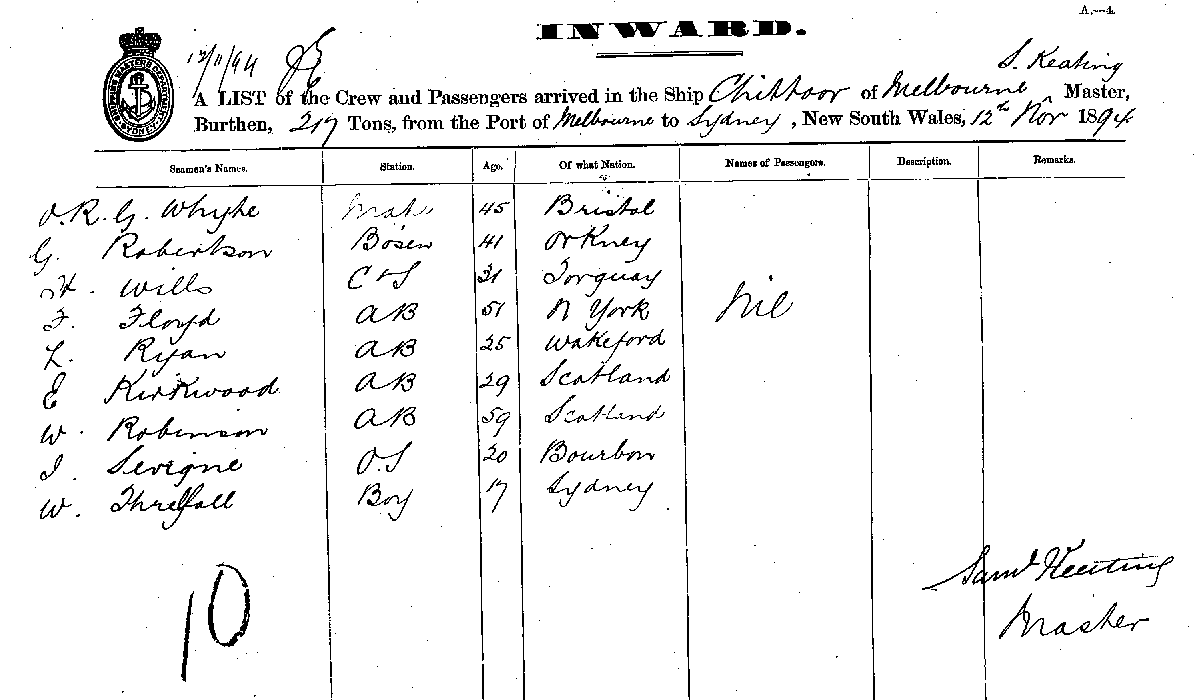 A.—4.
INWARD.
12/11/94
S. Keating
A LIST of the Crew and Passengers arrived in the Ship Chittoor of Melbourne Master,
Burthen, 217 Tons, from the Port of Melbourne to Sydney, New South Wales, 12th Nov 1894
Seamen's Names. Station. Age. Of what Nation. Names of Passengers. Description. Remarks.
O.R.G. Whyte Mate 45 Bristol
G. Robertson Bosen 41 Orkney
H. Wills C & S 31 Torquay
F. Floyd AB 51 N York Nil
L. Ryan AB 25 Wakeford
E Kirkwood AB 29 Scotland
W. Robinson AB 59 Scotland
J. Sevigne O.S 20 Bourbon
W. Threlfall Boy 17 Sydney
Saml Keating
Master
10